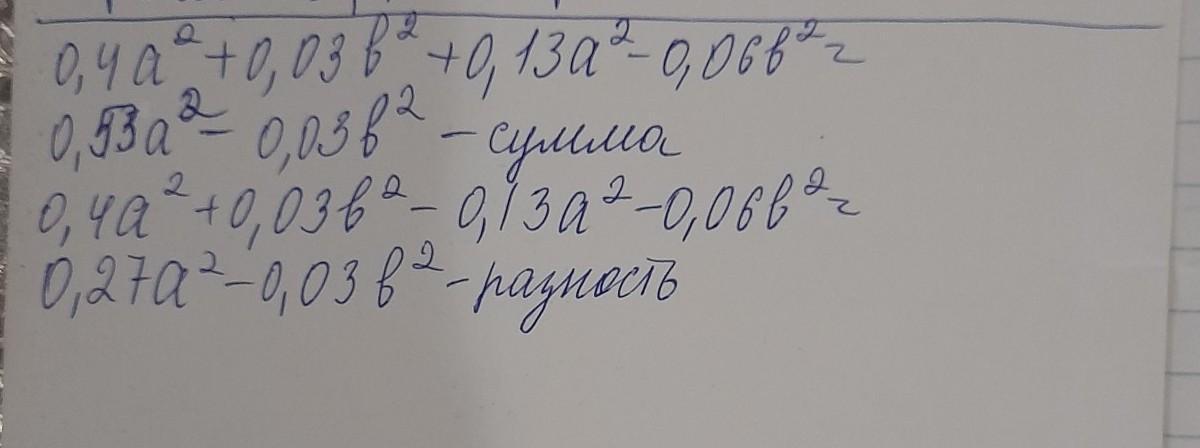 0,4а² + 0,03в² + 0,13а² - 0,06в² =
0,53а² - 0,03в² - сумма
0,4а² + 0,03в² - 0,13а² - 0,06в² =
0,27а² - 0,03в² - разность